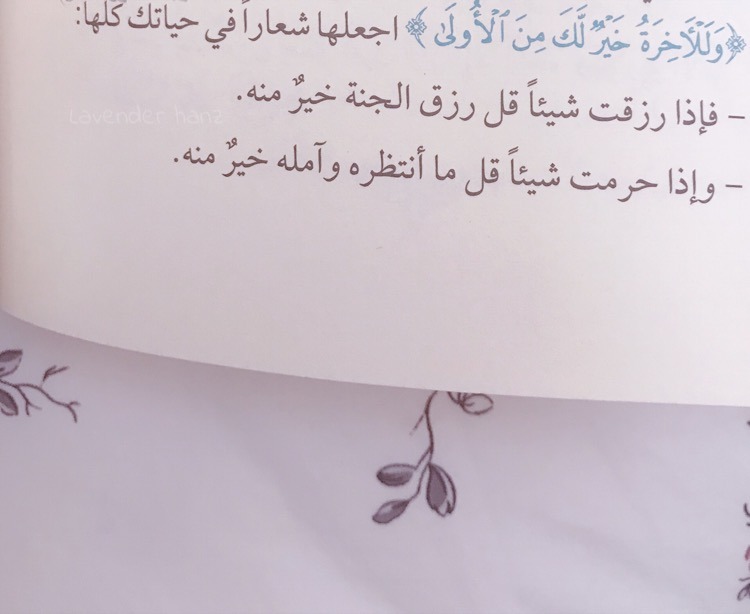 ﴿وَلَلْآخِرَةُ خَيْرٌ لَّكَ مِنَ ٱلْأُولَىٰ﴾ اجعلها شعاراً في حياتك كلها:
– فإذا رزقت شيئاً قل رزق الجنة خيرٌ منه.
– وإذا حرمت شيئاً قل ما أنتظره وآمله خيرٌ منه.
Lavender hanz